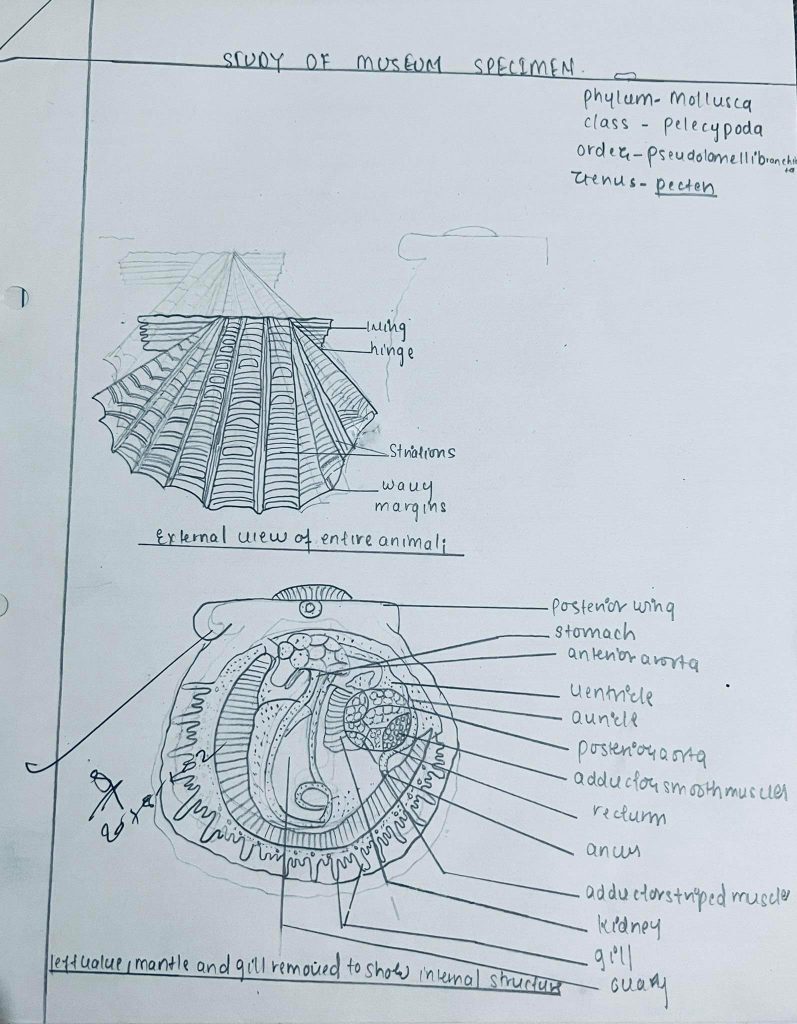 STUDY OF MUSEUM SPECIMEN.
phylum- Mollusca
class - pelecypoda
order-pseudolamellibranchiata
Genus- pecten
wing
hinge
Striations
wavy
margins
External view of entire animal;
posterior wing
stomach
anterior aorta
ventricle
auricle
posterior aorta
adductor smooth muscles
rectum
anus
adductor striped muscle
kidney
gill
ovary
left valve, mantle and gill removed to show internal structure